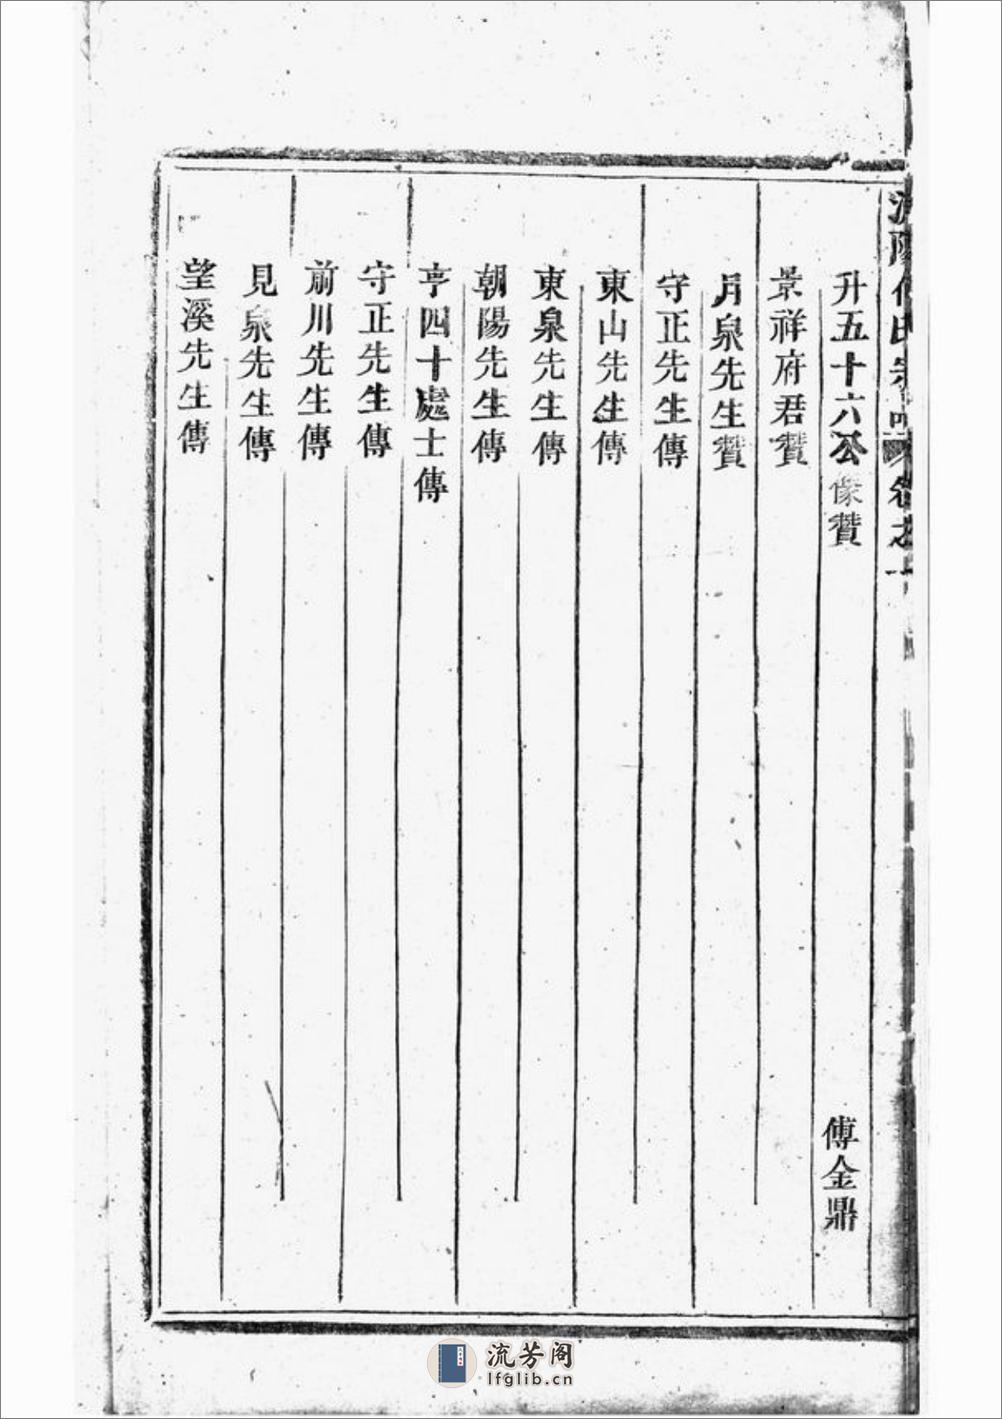 宗
卷之一
升五十六公像贊
傅金鼎
景祥府君贊
月泉先生贊
守正先生傳
東山先生傳
東泉先生傳
朝陽先生傳
亨四十處士傳
守正先生傳
前川先生傳
見泉先生傳
望溪先生傳
流芳阁
lfglib.cn